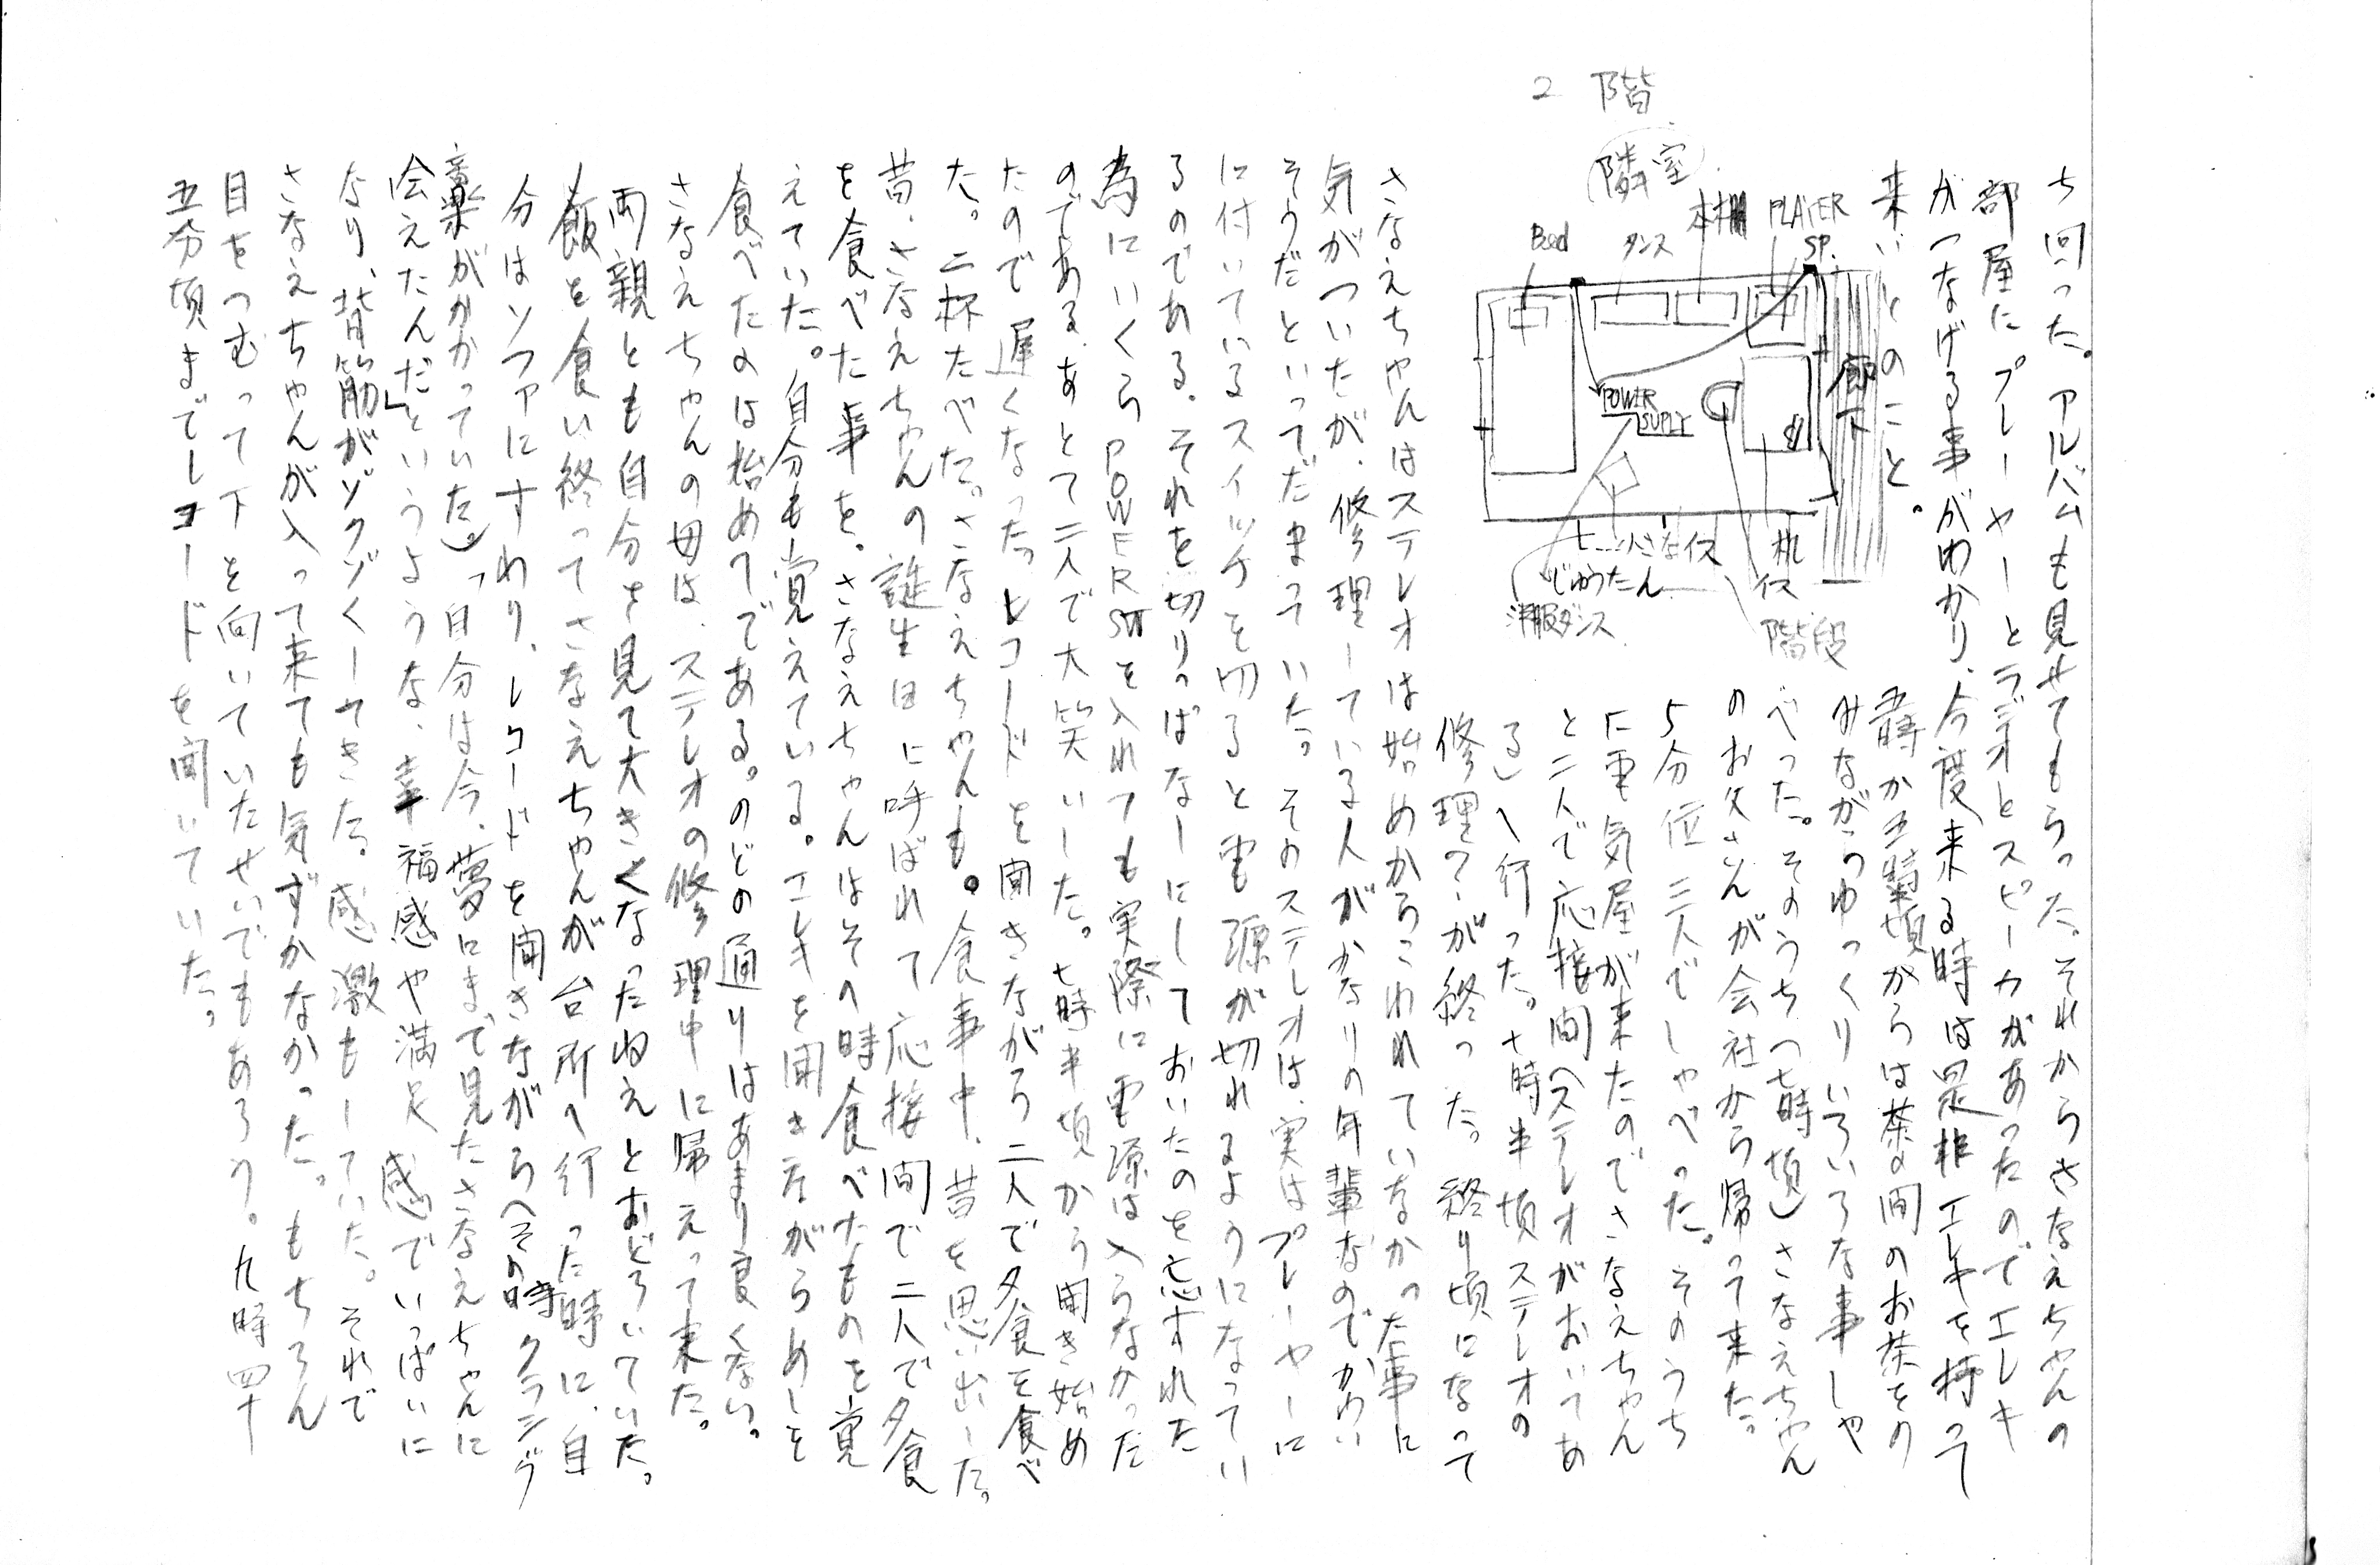 ち回った。アルバムも見せてもらった。それからさなえちゃんの
部屋にプレーヤーとラジオとスピーカがあったのでエレキ
がつなげる事がわかり、今度来る時は是非エレキを持って
来いとのこと。
五時か五時半頃からは茶の間のお茶をの
みながらゆっくりいろいろな事しゃ
べった。そのうち(七時頃)さなえちゃん
のお父さんが会社から帰って来た。
5分位三人でしゃべった。そのうち
に電気屋が来たのでさなえちゃん
と二人で応接間(ステレオがおいてあ
る)へ行った。七時半頃ステレオの
修理が終った。終り頃になって
さなえちゃんはステレオは始めからこわれていなかった事に
気がついたが、修理している人がかなりの年輩なのでかわい
そうだといってだまっていた。そのステレオは、実はプレーヤーに
に付いているスイッチを切ると電源が切れるようになってい
るのである。それを切りっぱなしにしておいたのを忘すれた
為にいくらPOWER SWを入れても実際に電源は入らなかった
のである。あとで二人で大笑いした。七時半頃から聞き始め
たので遅くなった。レコードを聞きながら二人で夕食を食べ
た。二杯たべた。さなえちゃんも。食事中、昔を思い出した。
昔、さなえちゃんの誕生日に呼ばれて応接間で二人で夕食
を食べた事を。さなえちゃんはその時食べたものを覚
えていた。自分も覚えている。エレキを聞きながらめしを
食べたのは始めてである。のどの通りはあまり良くない。
さなえちゃんの母は、ステレオの修理中に帰えって来た。
両親とも自分を見て大きくなったねえとおどろいていた。
飯を食い終ってさなえちゃんが台所へ行った時に、自
分はソファにすわり、レコードを聞きながら(その時クラシック
音楽がかかっていた)。「自分は今、夢にまで見たさなえちゃんに
会えたんだ」というような、幸福感や満足感でいっぱいに
なり、背筋がゾクゾクしてきた。感激もしていた。それで
さなえちゃんが入って来ても気ずかなかった。もちろん
目をつむって下を向いていたせいでもあろう。九時四十
五分頃までレコードを聞いていた。
2階
隣室
Bed
タンス
本棚
PLAYER
SP.
廊下
POWER
SUPLY
じゅうたん
洋服ダンス
机
イス
階段